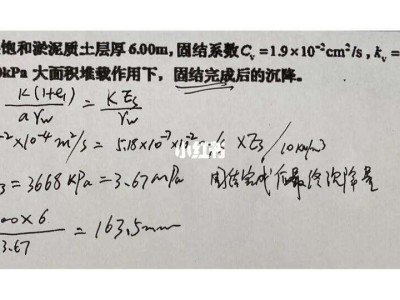 饱和淤泥质土层厚6.00m,固结系数Cᵥ=1.9×10⁻²cm²/s,kᵥ=
kPa 大面积堆载作用下,固结完成后的沉降。
K(1+e₁)/aγw = KEs/γw
⁻²×10⁻⁴m²/s = 5.18×10⁻⁷×10⁻² ×Es/10kN/m³
小红书
=3668kPa=3.67mPa 固结完成后最终沉降量
×6/3.67 =163.5mm